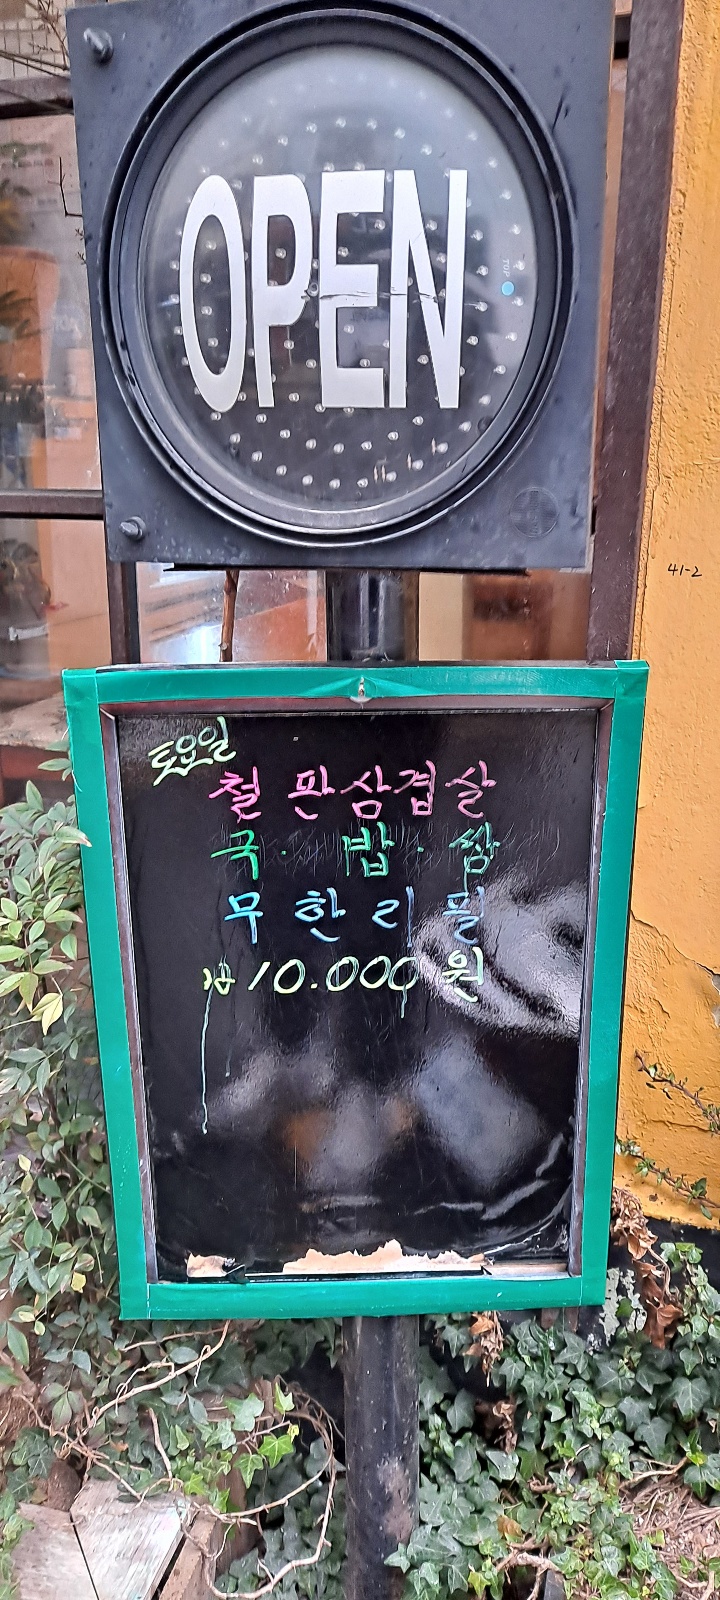 OPEN
TOP
41-2
토요일
철판삼겹살
국·밥·쌈
무한리필
10.000원